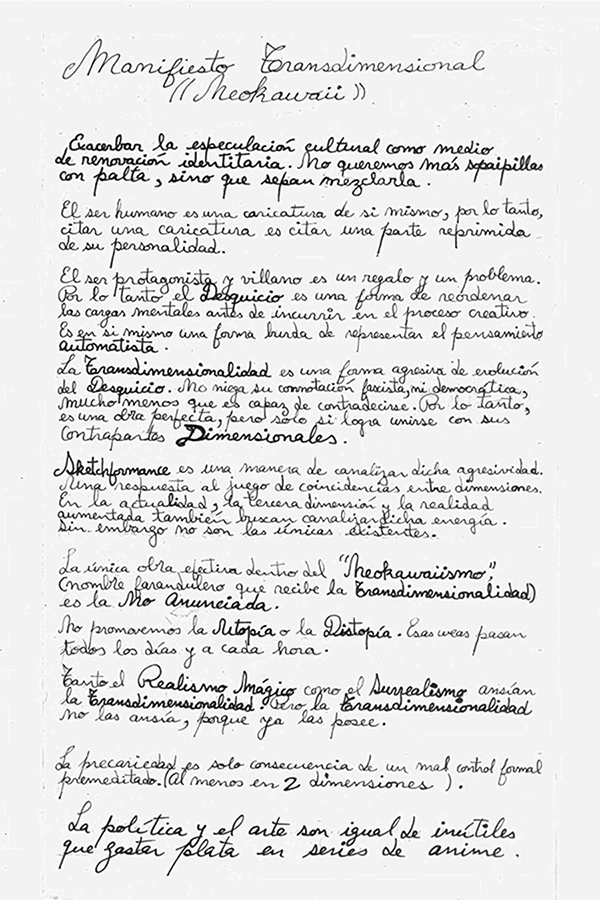 Manifiesto Transdimensional
((Neokawaii))
Exacerbar la especulación cultural como medio
de renovación identitaria. No queremos más sopaipillas
con palta, sino que sepan mezclarla.
El ser humano es una caricatura de si mismo, por lo tanto,
citar una caricatura es citar una parte reprimida
de su personalidad.
El ser protagonista y villano es un regalo y un problema.
Por lo tanto el Desquicio es una forma de reordenar
las cargas mentales antes de incurrir en el proceso creativo.
Es en si mismo una forma burda de representar el pensamiento
automatista.
La Transdimensionalidad es una forma agresiva de evolución
del Desquicio. No niega su connotación fascista, ni democrática,
mucho menos que es capaz de contradecirse. Por lo tanto,
es una obra perfecta, pero solo si logra unirse con sus
contrapartes Dimensionales.
Sketchformance es una manera de canalizar dicha agresividad.
una respuesta al juego de coincidencias entre dimensiones.
En la actualidad, la tercera dimensión y la realidad
aumentada también buscan canalizar dicha energía.
Sin embargo no son las únicas existentes.
La única obra efectiva dentro del "Neokawaiismo",
(nombre farandulero que recibe la Transdimensionalidad)
es la No Anunciada.
No promovemos la Utopía o la Distopía. Esas weas pasan
todos los días y a cada hora.
Tanto el Realismo Mágico como el Surrealismo ansían
la Transdimensionalidad. Pero la Transdimensionalidad
no las ansía, porque ya las posee.
La precariedad es solo consecuencia de un mal control formal
premeditado. (Al menos en 2 dimensiones ).
La política y el arte son igual de inútiles
que gastar plata en series de anime.